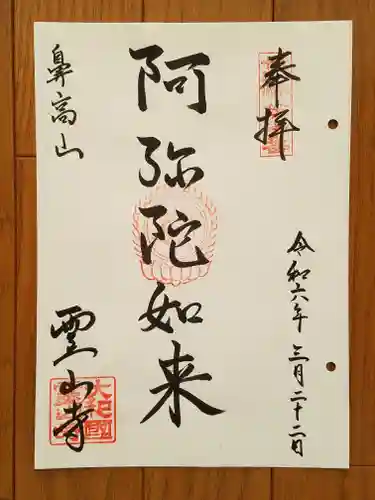 奉拝
令和六年 三月二十二日
阿弥陀如来
鼻高山
霊山寺